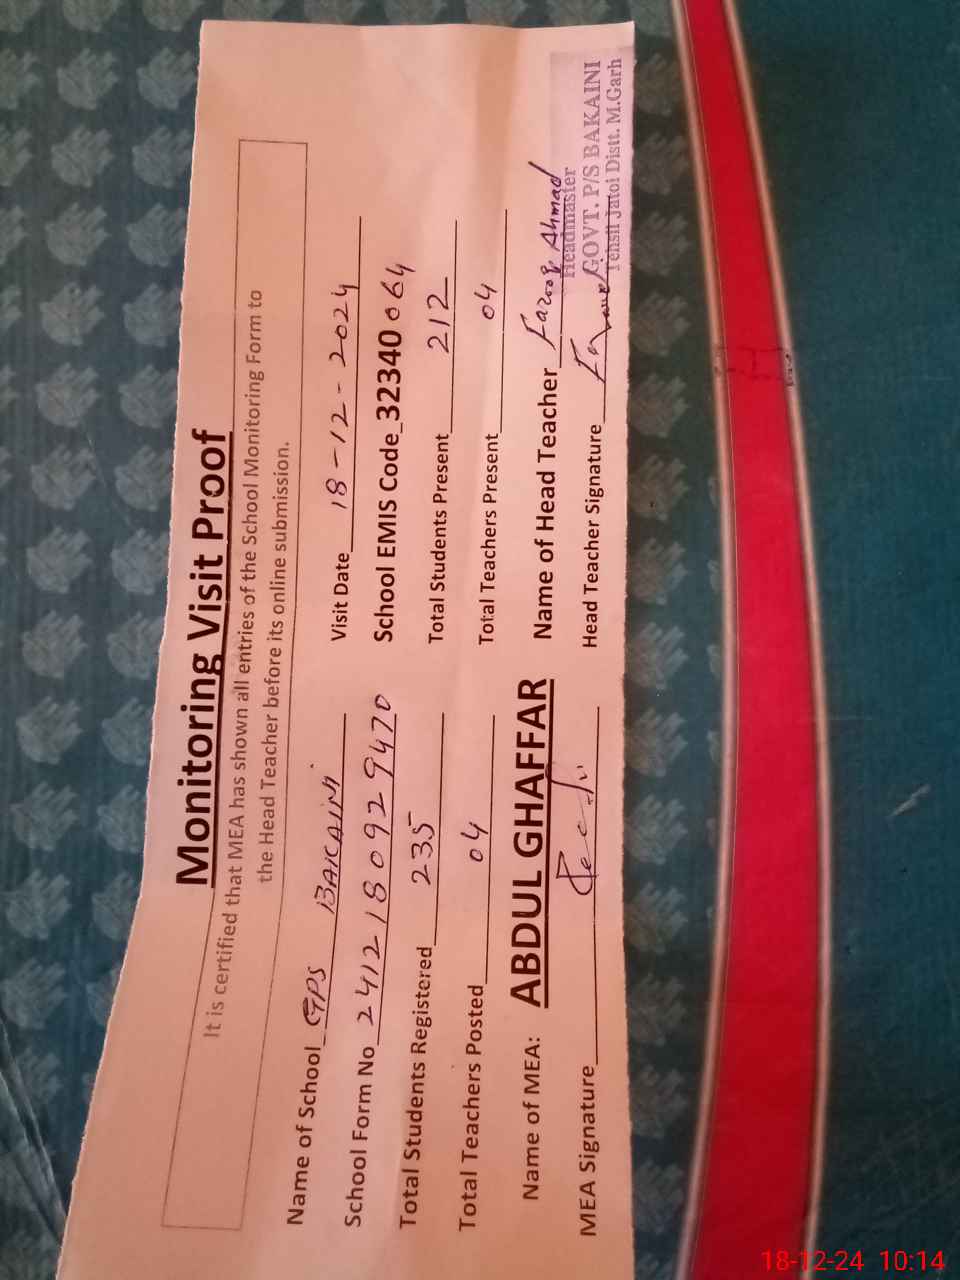 Monitoring Visit Proof
It is certified that MEA has shown all entries of the School Monitoring Form to
the Head Teacher before its online submission.
Name of School GPS BAKAINI Visit Date 18-12-2024
School Form No 2412180929470 School EMIS Code 32340064
Total Students Registered 235 Total Students Present 212
Total Teachers Posted 04 Total Teachers Present 04
Name of MEA: ABDUL GHAFFAR Name of Head Teacher Farooq Ahmad
MEA Signature Head Teacher Signature
Headmaster
GOVT. P/S BAKAINI
Tehsil Jatoi Distt. M.Garh
18-12-24 10:14